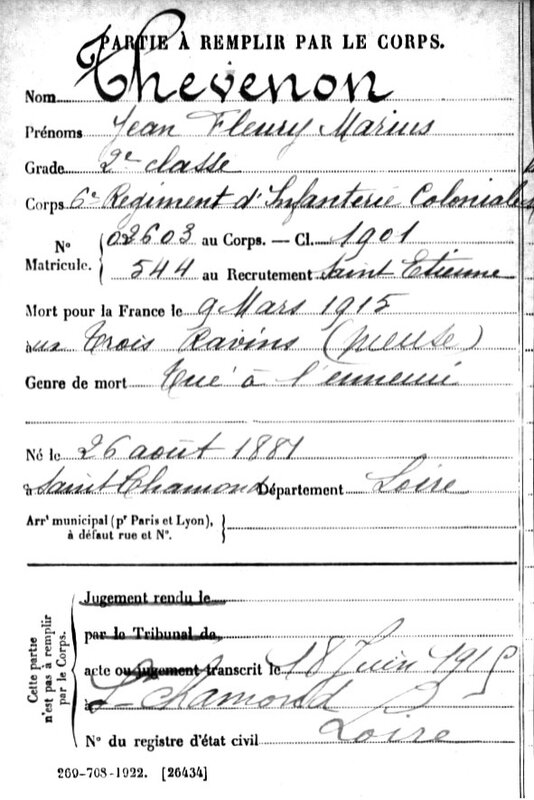 PARTIE À REMPLIR PAR LE CORPS.
Nom Thevenon
Prénoms Jean Fleury Marius
Grade 2e classe
Corps 6e Régiment d'Infanterie Coloniale
No Matricule. { 03603 au Corps. — Cl. 1901
544 au Recrutement Saint Etienne
Mort pour la France le 9 Mars 1915
aux Trois Ravins (Meuse)
Genre de mort Tué à l'ennemi
Né le 26 août 1881
à Saint Chamond Département Loire
Arrt municipal (pr Paris et Lyon), à défaut rue et No.
Cette partie n'est pas à remplir par le Corps.
Jugement rendu le
par le Tribunal de
acte ou jugement transcrit le 18 Juin 1915
à St Chamond
No du registre d'état civil Loire
269-708-1922. [26434]